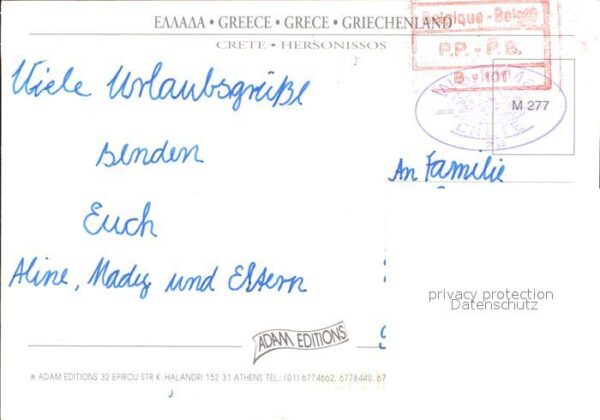 ΕΛΛΑΔΑ • GREECE • GRECE • GRIECHENLAND
CRETE • HERSONISSOS
Belgique - België
P.P. - P.B.
B - 101
CRETE
M 277
Viele Urlaubsgrüße
senden
Euch
Aline, Mady und Eltern
An Familie
privacy protection
Datenschutz
ADAM EDITIONS
※ ADAM EDITIONS 32 EPIROU STR K. HALANDRI 152 31 ATHENS TEL.: (01) 6774662, 6778440, 67